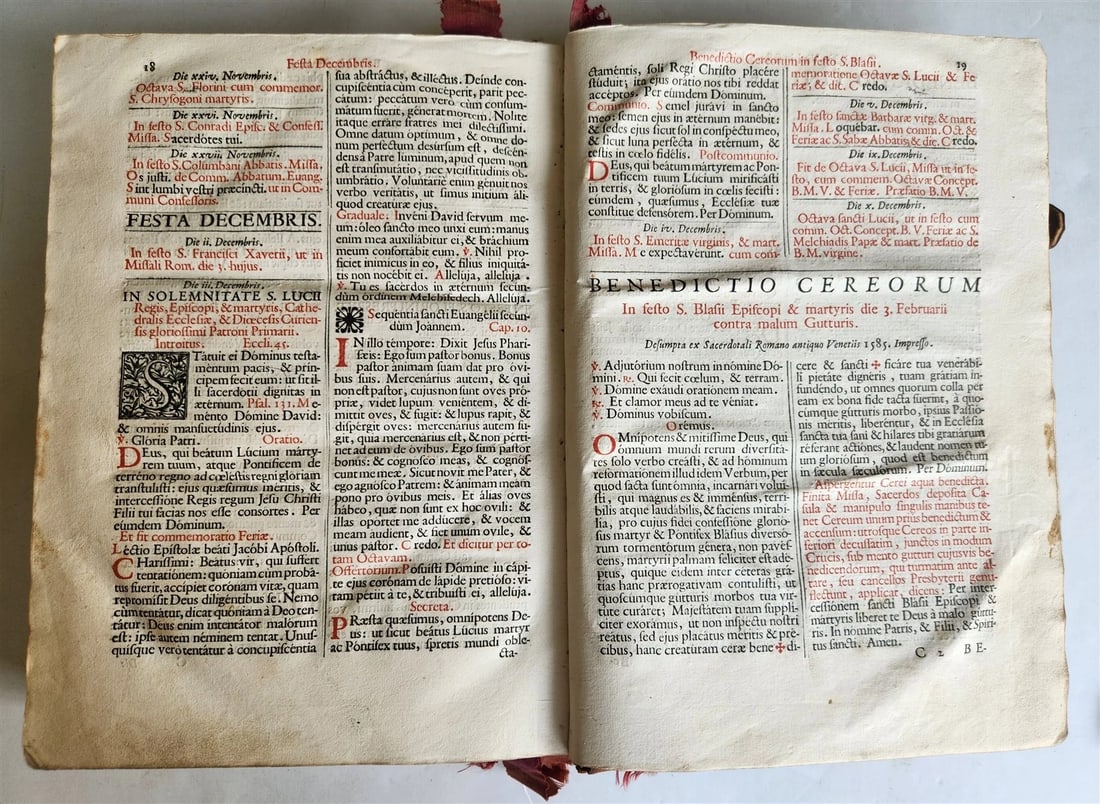 18
Festa Decembris.
Die xxiv. Novembris.
Octava S. Florini cum commemor.
S. Chrysogoni martyris.
Die xxvi. Novembris.
In festo S. Conradi Episc. & Confess.
Missa. Sacerdótes tui.
Die xxvii. Novembris.
In festo S. Columbani Abbatis. Missa.
Os justi. de Comm. Abbatum. Euang.
Sint lumbi vestri præcincti. ut in Com-
muni Confessoris.
FESTA DECEMBRIS.
Die ii. Decembris.
In festo S. Francisci Xaverii, ut in
Missali Rom. die 3. hujus.
Die iii. Decembris.
IN SOLEMNITATE S. LUCII
Regis, Episcopi, & martyris, Cathe-
dralis Ecclesiæ, & Diœcesis Curien-
sis gloriosissimi Patroni Primarii.
Introitus. Eccli. 45.
STátuit ei Dóminus testa-
méntum pacis, & prín-
cipem fecit eum: ut sit il-
li sacerdótii dignitas in
ætérnum. Psal. 131. Me-
ménto Dómine David:
& omnis mansuetúdinis ejus.
℣. Glória Patri. Oratio.
DEus, qui beátum Lúcium márty-
rem tuum, atque Pontíficem de
terréno regno ad cœléstis regni glóriam
transtulísti: ejus quǽsumus méritis, &
intercessióne Regis regum Jesu Christi
Fílii tui fácias nos esse consórtes. Per
eúmdem Dóminum.
Et fit commemoratio Feriæ.
Léctio Epístolæ beáti Jacóbi Apóstoli.
CHaríssimi: Beátus vir, qui suffert
tentatiónem: quóniam cùm probá-
tus fúerit, accípiet corónam vitæ, quam
repromísit Deus diligéntibus se. Nemo
cùm tentátur, dicat quóniam à Deo ten-
tátur: Deus enim intentátor malórum
est: ipse autem néminem tentat. Unus-
quísque verò tentátur à concupiscéntia
sua abstráctus, & illéctus. Deínde con-
cupiscéntia cùm concéperit, parit pec-
cátum: peccátum verò cùm consum-
mátum fúerit, génerat mortem. Nolíte
ítaque erráre fratres mei dilectíssimi.
Omne datum óptimum, & omne do-
num perféctum desúrsum est, descén-
dens à Patre lúminum, apud quem non
est transmutátio, nec vicissitúdinis ob-
umbrátio. Voluntáriè enim génuit nos
verbo veritátis, ut simus inítium áli-
quod creatúræ ejus.
Graduale. Invéni David servum me-
um: óleo sancto meo unxi eum: manus
enim mea auxiliábitur ei, & bráchium
meum confortábit eum. ℣. Nihil pro-
fíciet inimícus in eo, & fílius iniquitá-
tis non nocébit ei. Allelúja, allelúja.
℣. Tu es sacérdos in ætérnum secún-
dùm órdinem Melchísedech. Allelúja.
Sequéntia sancti Euangélii secún-
dùm Joánnem. Cap. 10.
IN illo témpore: Dixit Jesus Phari-
sǽis: Ego sum pastor bonus. Bonus
pastor ánimam suam dat pro óvi-
bus suis. Mercenárius autem, & qui
non est pastor, cujus non sunt oves pró-
priæ, videt lupum veniéntem, & di-
míttit oves, & fugit: & lupus rapit, &
dispérgit oves: mercenárius autem fu-
git, quia mercenárius est, & non pérti-
net ad eum de óvibus. Ego sum pastor
bonus: & cognósco meas, & cognós-
cunt me meæ. Sicut novit me Pater, &
ego agnósco Patrem: & ánimam meam
pono pro óvibus meis. Et álias oves
hábeo, quæ non sunt ex hoc ovíli: &
illas opórtet me addúcere, & vocem
meam áudient, & fiet unum ovíle, &
unus pastor. Credo. Et dicitur per to-
tam Octavam.
Offertorium. Posuísti Dómine in cápi-
te ejus corónam de lápide pretióso: vi-
tam pétiit à te, & tribuísti ei, allelúja.
Secreta.
PRæsta quǽsumus, omnípotens De-
us: ut sicut beátus Lúcius martyr
ac Póntifex tuus, spretis mundi oble-
cta-
Benedictio Cereorum in festo S. Blasii.
19
ctaméntis, soli Regi Christo placére
stúduit; ita ejus orátio nos tibi reddat
accéptos. Per eúmdem Dóminum.
Communio. Semel jurávi in sancto
meo: semen ejus in ætérnum manébit:
& sedes ejus sicut sol in conspéctu meo,
& sicut luna perfécta in ætérnum, &
testis in cœlo fidélis. Postcommunio.
DEus, qui beátum mártyrem ac Pon-
tíficem tuum Lúcium mirificásti
in terris, & gloriósum in cœlis fecísti:
eúmdem, quǽsumus, Ecclésiæ tuæ
constítue defensórem. Per Dóminum.
Die iv. Decembris.
In festo S. Emeritæ virginis, & mart.
Missa. Me expectavérunt. cum com-
memoratione Octavæ S. Lucii & Fe-
riæ; & dit. Credo.
Die v. Decembris.
In festo sanctæ Barbaræ virg. & mart.
Missa. Loquébar. cum comm. Oct. &
Feriæ ac S. Sabæ Abbatis; & dit. Credo.
Die ix. Decembris.
Fit de Octava S. Lucii, Missa ut in fe-
sto, cum commem. Octavæ Concept.
B. M. V. & Feriæ. Præfatio B. M. V.
Die x. Decembris.
Octava sancti Lucii, ut in festo cum
comm. Oct. Concept. B. V. Feriæ ac S.
Melchiadis Papæ & mart. Præfatio de
B. M. virgine.
BENEDICTIO CEREORUM
In festo S. Blasii Episcopi & martyris die 3. Februarii
contra malum Gutturis.
Desumpta ex Sacerdotali Romano antiquo Venetiis 1585. Impresso.
℣. Adjutórium nostrum in nómine Dó-
mini. ℟. Qui fecit cœlum, & terram.
℣. Dómine exáudi oratiónem meam.
℟. Et clamor meus ad te véniat.
℣. Dóminus vobíscum.
Orémus.
OMnípotens & mitíssime Deus, qui
ómnium mundi rerum diversitá-
tes solo verbo creásti, & ad hóminum
reformatiónem illud idem Verbum, per
quod facta sunt ómnia, incarnári voluí-
sti, qui magnus es & imménsus, terrí-
bilis atque laudábilis, & fáciens mirabí-
lia, pro cujus fídei confessióne glorió-
sus martyr & Póntifex Blásius diversó-
rum tormentórum génera, non pavés-
cens, martýrii palmam felíciter est ad-
éptus, quíque eídem inter céteras grá-
tias hanc prærogatívam contulísti, ut
quoscúmque gútturis morbos tua vir-
túte curáret; Majestátem tuam supplí-
citer exorámus, ut non inspéctu nostri
reátus, sed ejus placátus méritis & pré-
cibus, hanc creatúram ceræ bene✠dí-
cere & sancti✠ficáre tua venerábi-
li pietáte dignéris, tuam grátiam in-
fundéndo, ut omnes quorum colla per
eam ex bona fide tacta fúerint, à quo-
cúmque gútturis morbo, ipsíus Passió-
nis méritis, liberéntur, & in Ecclésia
sancta tua sani & hílares tibi gratiárum
réferant actiónes, & laudent nomen tu-
um gloriósum, quod est benedíctum
in sǽcula sæculórum. Per Dóminum.
Aspergentur Cerei aqua benedicta.
Finita Missa, Sacerdos deposita Ca-
sula & manipulo singulis manibus te-
net Cereum unum prius benedictum &
accensum: utrosque Cereos in parte in-
feriori decussatim, junctos in modum
Crucis, sub mento gutturi cujusvis be-
nedicendorum, qui turmatim ante al-
tare, seu cancellos Presbyterii genu-
flectunt, applicat, dicens: Per inter-
cessiónem sancti Blásii Epíscopi &
mártyris líberet te Deus à malo gúttu-
ris. In nómine Patris, & Fílii, & Spíri-
tus sancti. Amen.
C 2 BE-